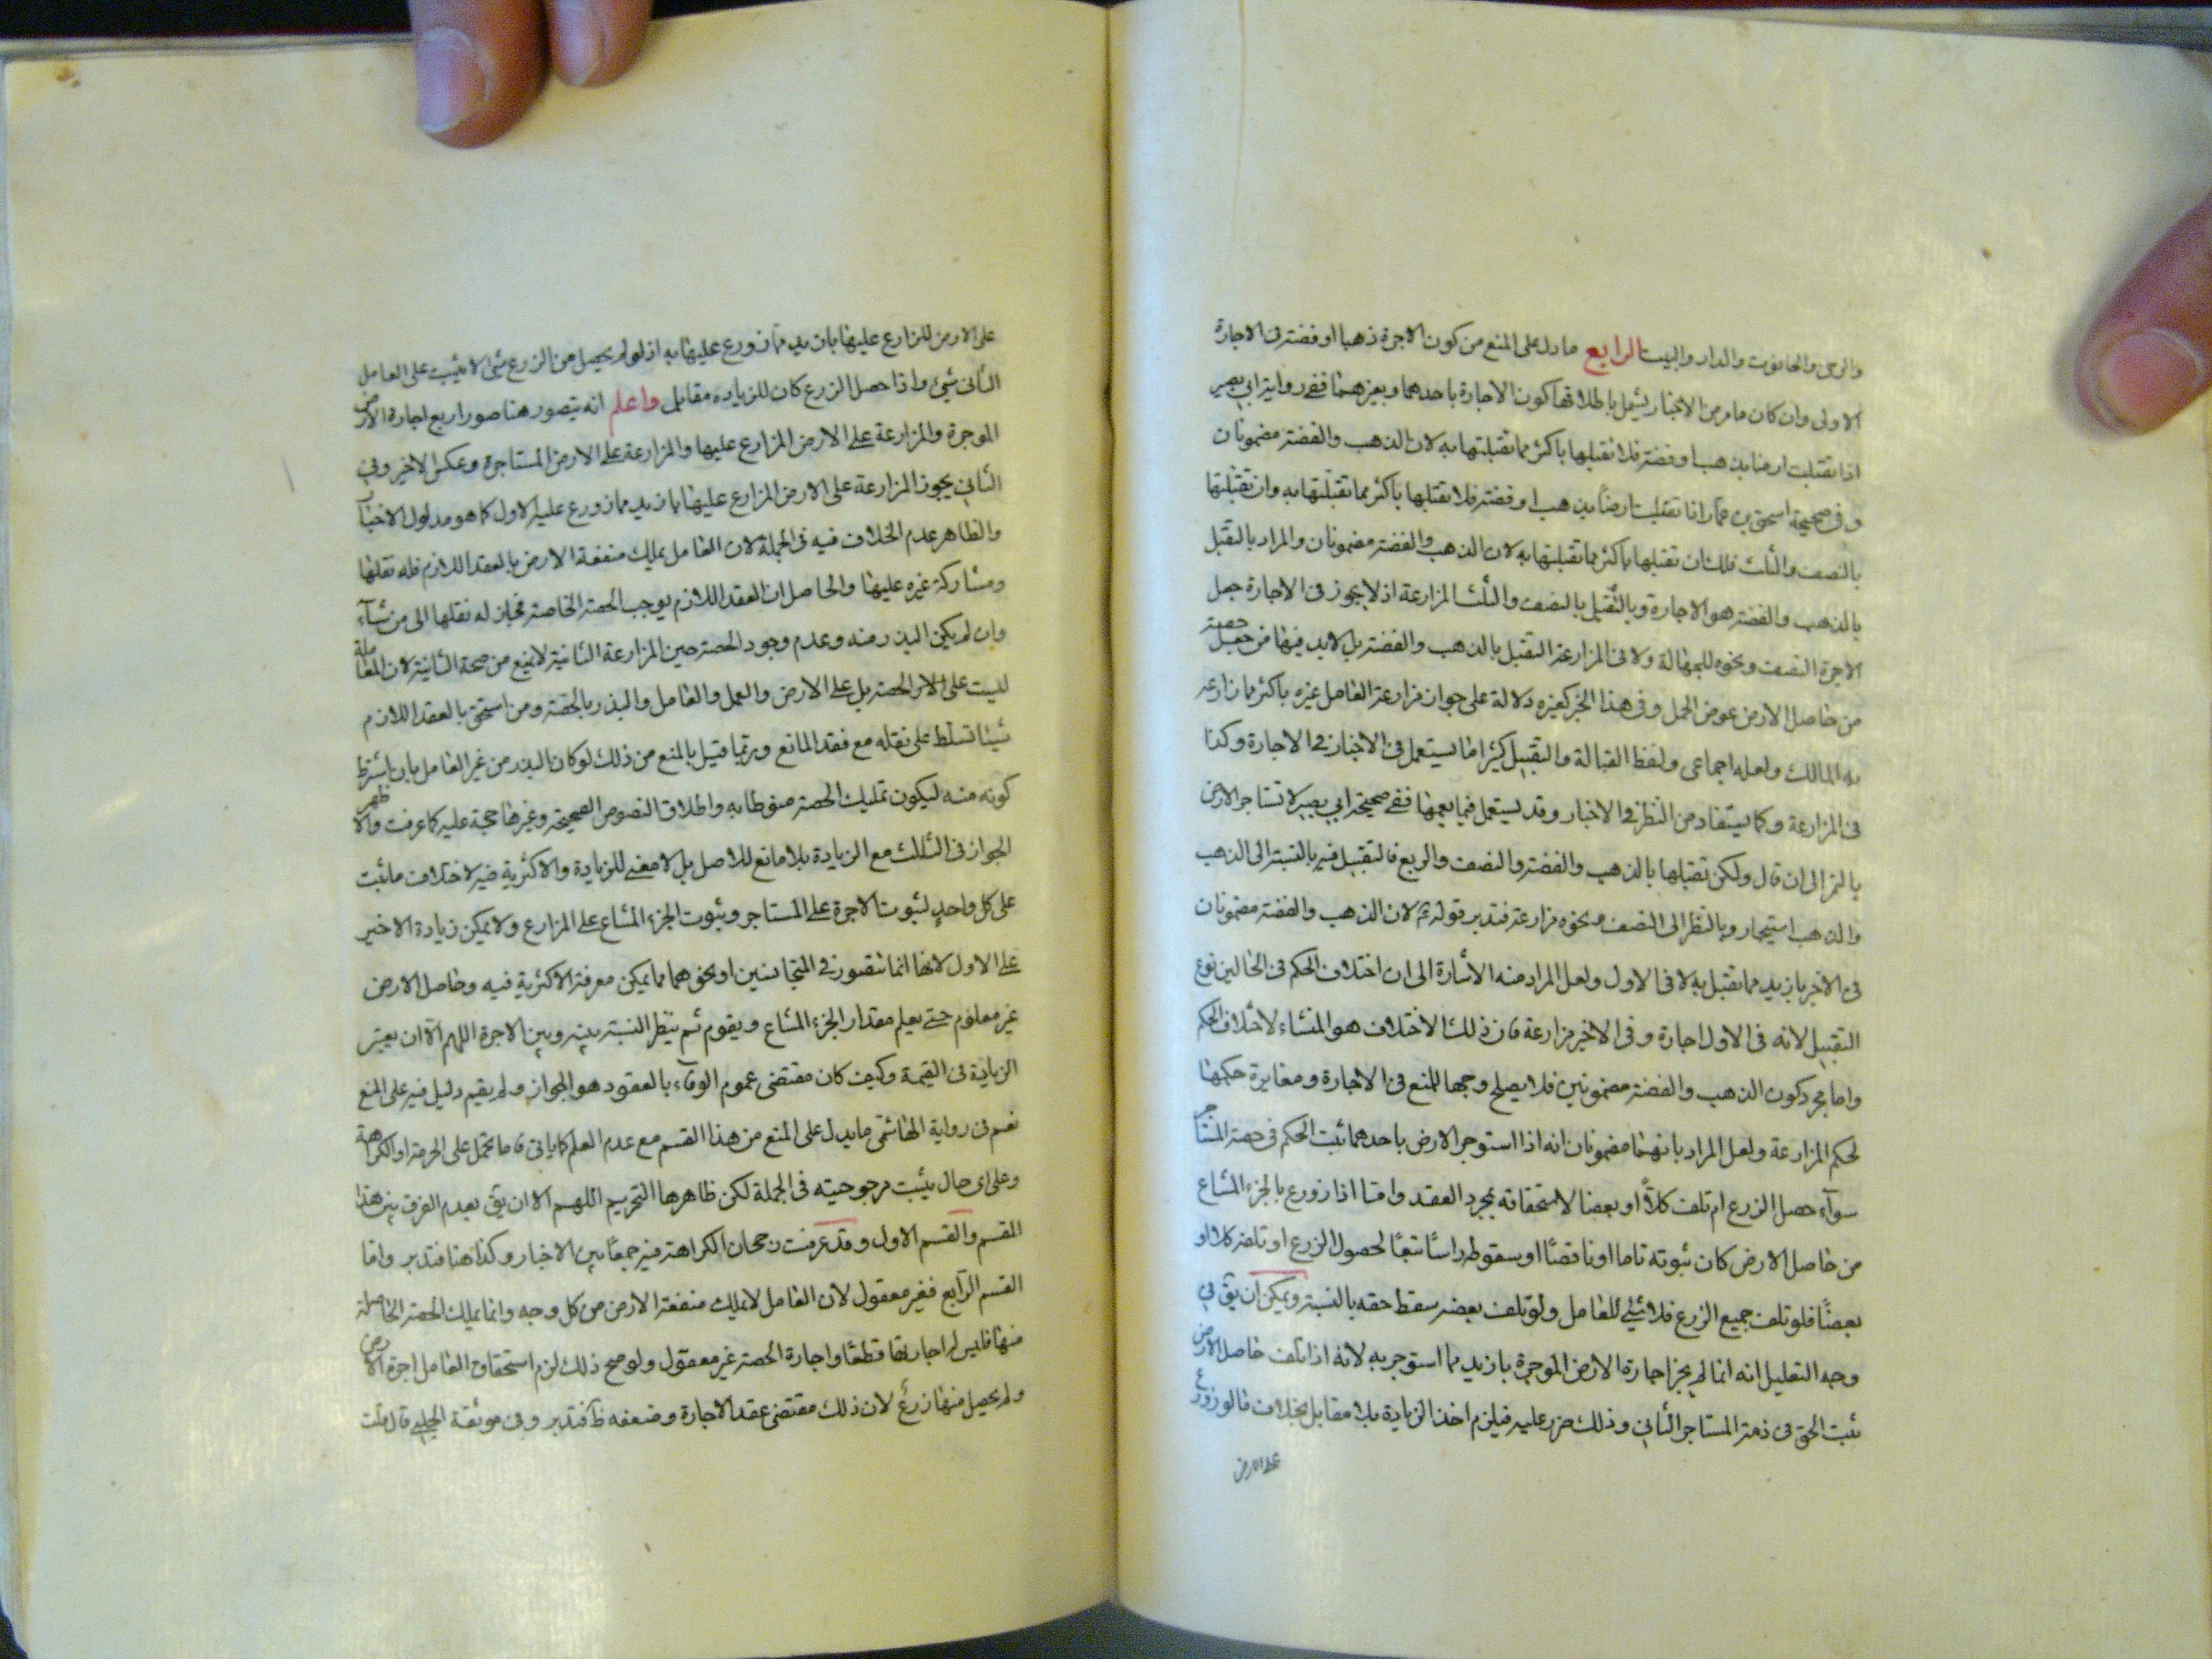 والرحى والحانوت والدار والبيت الرابع ما دل على المنع من كون الاجرة ذهبا او فضة في الاجارة
الاولى وان كان ما مر من الاخبار يشمل باطلاقها كون الاجارة باحدهما وبغيرهما ففي رواية ابي بصير
اذا تقبلت ارضا بذهب او فضة فلا تقبلها باكثر مما تقبلتها به لان الذهب والفضة مضمونان
وفي صحيحة اسحق بن عمار اذا تقبلت ارضا بذهب او فضة فلا تقبلها باكثر مما تقبلتها به وان تقبلتها
بالنصف والثلث فلك ان تقبلها باكثر مما تقبلتها به لان الذهب والفضة مضمونان والمراد بالتقبل
بالذهب والفضة هو الاجارة وبالتقبل بالنصف والثلث المزارعة اذ لا يجوز في الاجارة جعل
الاجرة النصف ونحوه للجهالة ولا في المزارعة التقبل بالذهب والفضة بل لابد فيها من جعل حصة
من حاصل الارض عوض العمل وفي هذا الخبر كغيره دلالة على جواز مزارعة العامل غيره باكثر مما زارعه
به المالك ولعله اجماعي ولفظ القبالة والتقبيل كثيرا ما يستعمل في الاخبار في الاجارة وكذا
في المزارعة وكما يستفاد من النظر في الاخبار وقد يستعمل فيما يعمها ففي صحيحة ابي بصير لا تستاجر الارض
بالتمر الى ان قال ولكن تقبلها بالذهب والفضة والنصف والربع فالتقبيل فيه بالنسبة الى الذهب
والذهب استيجار وبالنظر الى النصف ونحوه مزارعة فتدبر قوله ثم لان الذهب والفضة مضمونان
في الاخر بازيد مما تقبل به لا في الاول ولعل المراد منه الاشارة الى ان اختلاف الحكم في الحالين نوع
التقبيل لانه في الاول اجارة وفي الاخير مزارعة فان ذلك الاختلاف هو المنشاء لاختلاف الحكم
واما مجرد كون الذهب والفضة مضمونين فلا يصلح وجها للمنع في الاجارة ومغايرة حكمها
لحكم المزارعة ولعل المراد بانهما مضمونان انه اذا استوجر الارض باحدهما ثبت الحكم في حصة المستاجر
سواء حصل الزرع ام تلف كلا او بعضا لاستحقاقه بمجرد العقد واما اذا زورع بالجزء المشاع
من حاصل الارض كان ثبوته تاما او ناقصا او سقوطه راسا تبعا لحصول الزرع او تلفه كلا او
بعضا فلو تلف جميع الزرع فلا شيء للعامل ولو تلف بعضه سقط حقه بالنسبة ويمكن ان يق في
وجه التعليل انه انما لم يجز اجارة الارض الموجرة بازيد مما استوجر به لانه اذا تلف حاصل الارض
ثبت الحق في ذمة المستاجر الثاني وذلك ضرر عليه فيلزم اخذ الزيادة بلا مقابل بخلاف ما لو زورع
على الارض
على الارض للزارع عليها بازيد مما زورع عليها به اذ لو لم يحصل من الزرع شئ لا يثبت على العامل
الثاني شئ واذا حصل الزرع كان للزيادة مقابل واعلم انه يتصور هنا صور اربع اجارة الارض
الموجرة والمزارعة على الارض المزارع عليها والمزارعة على الارض المستاجرة وعكس الاخير وفي
الثاني يجوز المزارعة على الارض المزارع عليها بازيد مما زورع عليه الاول كما هو مدلول الاخبار
والظاهر عدم الخلاف فيه في الجملة لان العامل يملك منفعة الارض بالعقد اللازم فله نقلها
ومشاركة غيره عليها والحاصل ان العقد اللازم يوجب الحصة الخاصة فجاز له نقلها الى من شاء
وان لم يكن البذر منه وعدم وجود الحصة حين المزارعة الثانية لا يمنع من صحة الثانية لان المعاملة
ليست على الحصة بل على الارض والعمل والعامل والبذر بالحصة ومن استحق بالعقد اللازم
شيئا تسلط على نقله مع فقد المانع وربما قيل بالمنع من ذلك لو كان البذر من غير العامل بان اشترط
كونه منه ليكون تمليك الحصة منوطا به واطلاق النصوص الصحيحة وغيرها حجة عليه كما عرفت والاظهر
الجواز في الثلث مع الزيادة بلا مانع للاصل بل لا معنى للزيادة والاكثرية فيه لاختلاف ما ثبت
على كل واحد لثبوت الاجرة على المستاجر وثبوت الجزء المشاع على المزارع ولا يمكن زيادة الاخير
على الاول لانها انما تتصور في المتجانسين او نحوهما مما يمكن معرفة الاكثرية فيه وحاصل الارض
غير معلوم حتى يعلم مقدار الجزء المشاع ويقوم ثم ينظر النسبة بينه وبين الاجرة اللهم الا ان يعتبر
الزيادة في القيمة وكيف كان مقتضى عموم الوفاء بالعقود هو الجواز ولم يقيم دليل فيه على المنع
نعم في رواية الهاشمي ما يدل على المنع من هذا القسم مع عدم العلم كما ياتي فاما يحمل على الحرمة او الكراهة
وعلى اى حال يثبت مرجوحيته في الجملة لكن ظاهرها التحريم اللهم الا ان يق بعدم الفرق بين هذا
القسم والقسم الاول وقد عرفت رجحان الكراهة فيه جمعا بين الاخبار وكذا هنا فتدبر واما
القسم الرابع فغير معقول لان العامل لا يملك منفعة الارض من كل وجه وانما يملك الحصة الحاصلة
منها فليس له اجارتها قطعا واجارة الحصة غير معقول ولو صح ذلك لزم استحقاق العامل اجرة الارض
ولم يحصل منها زرع لان ذلك مقتضى عقد الاجارة وضعفه ظ فتدبر وفي موثقة الحلبي قال قلت